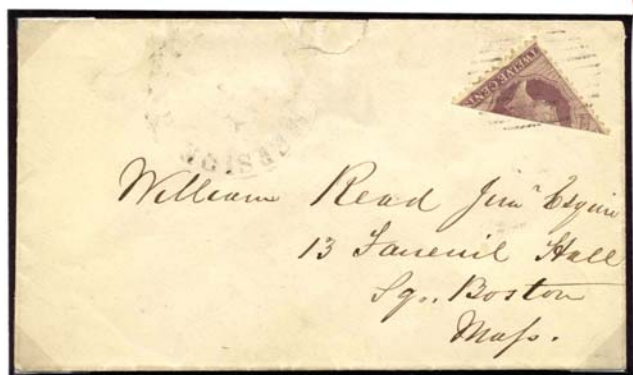 TWELVE CENT
William Read Junr Esquire
13 Faneuil Hall
Sq., Boston
Mass.